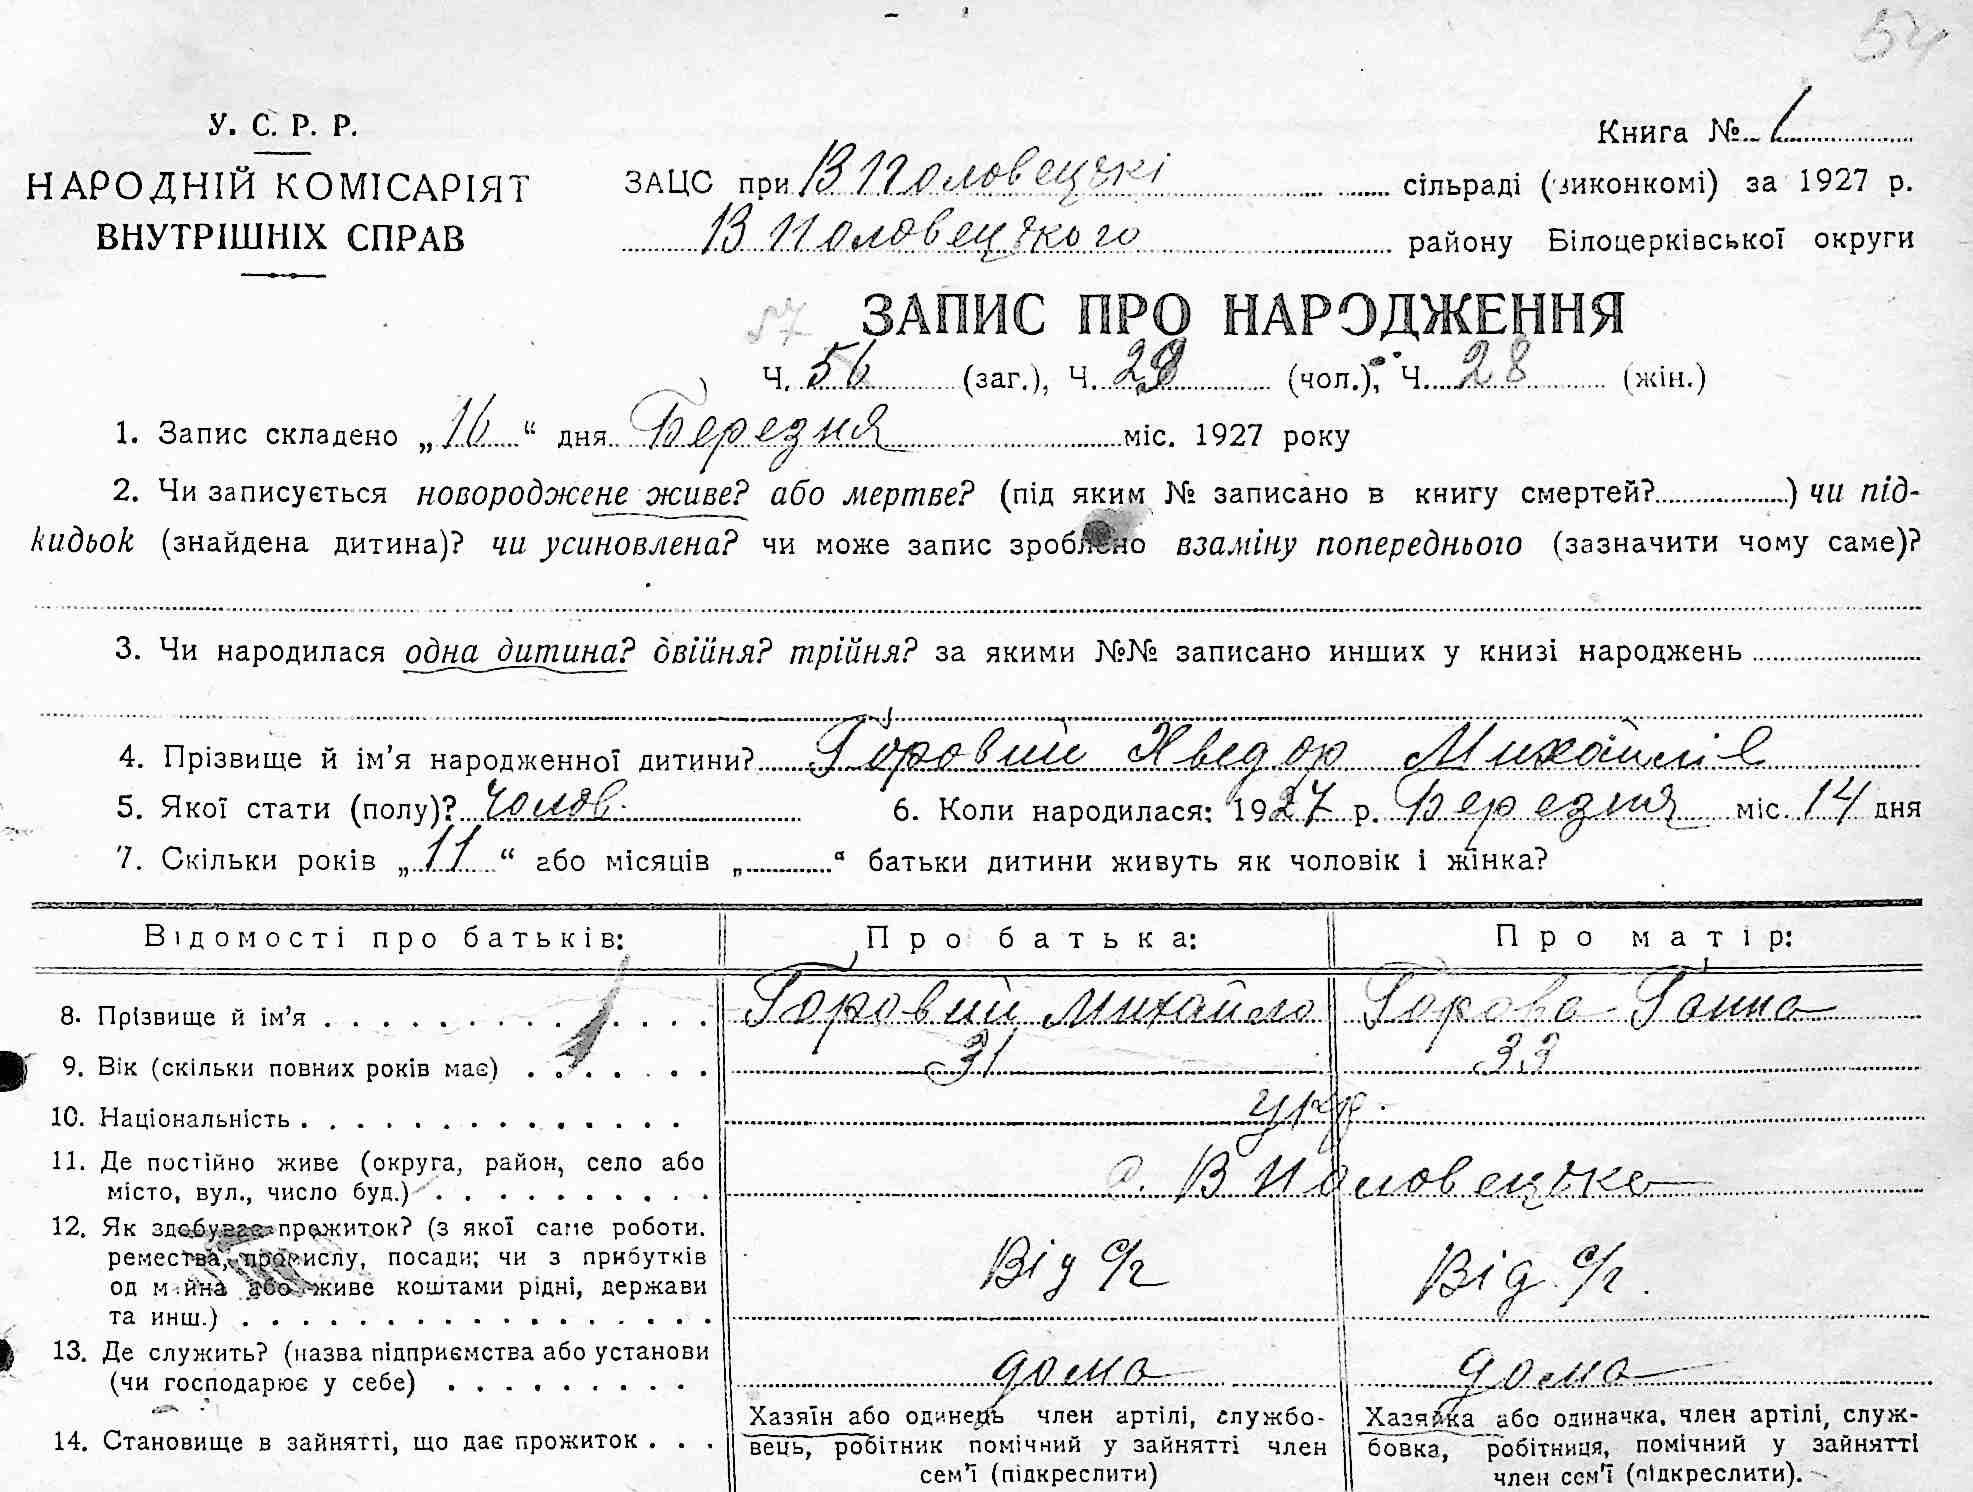 54
У. С. Р. Р.
НАРОДНІЙ КОМІСАРІЯТ
ВНУТРІШНІХ СПРАВ
Книга № 1
ЗАЦС при В Половецькі сільраді (виконкомі) за 1927 р.
В Половецького району Білоцерківської округи
57
ЗАПИС ПРО НАРОДЖЕННЯ
Ч. 56 (заг.), Ч. 29 (чол.), Ч. 28 (жін.)
1. Запис складено „16“ дня Березня міс. 1927 року
2. Чи записується новороджене живе? або мертве? (під яким № записано в книгу смертей?) чи під-
кидьок (знайдена дитина)? чи усиновлена? чи може запис зроблено взаміну попереднього (зазначити чому саме)?
3. Чи народилася одна дитина? двійня? трійня? за якими №№ записано инших у книзі народжень
4. Прізвище й ім'я народженної дитини? Горовий Хведор Михайлів
5. Якої стати (полу)? чолов. 6. Коли народилася: 1927 р. Березня міс. 14 дня
7. Скільки років „11“ або місяців „“ батьки дитини живуть як чоловік і жінка?
Відомості про батьків: Про батька: Про матір:
8. Прізвище й ім'я Горовий Михайло Горова Ганна
9. Вік (скільки повних років має) 31 33
10. Національність укр.
11. Де постійно живе (округа, район, село або
місто, вул., число буд.) с. В Половецьке
12. Як здобуває прожиток? (з якої саме роботи,
ремества, промислу, посади; чи з прибутків
од майна або живе коштами рідні, держави
та инш.) Від с/г Від с/г.
13. Де служить? (назва підприємства або установи
(чи господарює у себе) дома дома
14. Становище в зайнятті, що дає прожиток
Хазяїн або одинець член артілі, службо-
вець, робітник помічний у зайнятті член
сем'ї (підкреслити)
Хазяйка або одиначка, член артілі, служ-
бовка, робітниця, помічний у зайнятті
член сем'ї (підкреслити).